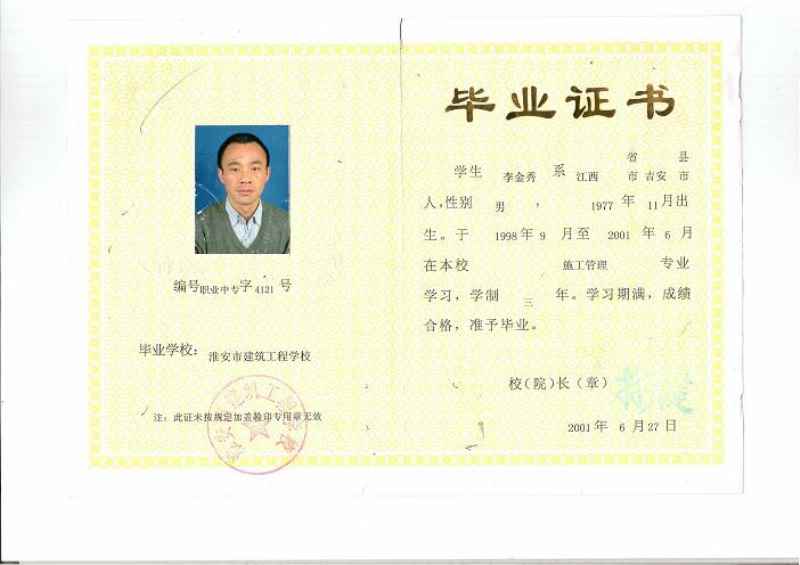 编号职业中专字4121 号
毕业学校：淮安市建筑工程学校
注：此证未按规定加盖验印专用章无效
毕业证书
学生 李金秀 系 江西 省市 吉安 县市
人，性别 男 ， 1977 年 11 月出
生。于 1998 年 9 月至 2001 年 6 月
在本校 施工管理 专业
学习，学制 三 年。学习期满，成绩
合格，准予毕业。
校（院）长（章）
2001 年 6 月 27 日